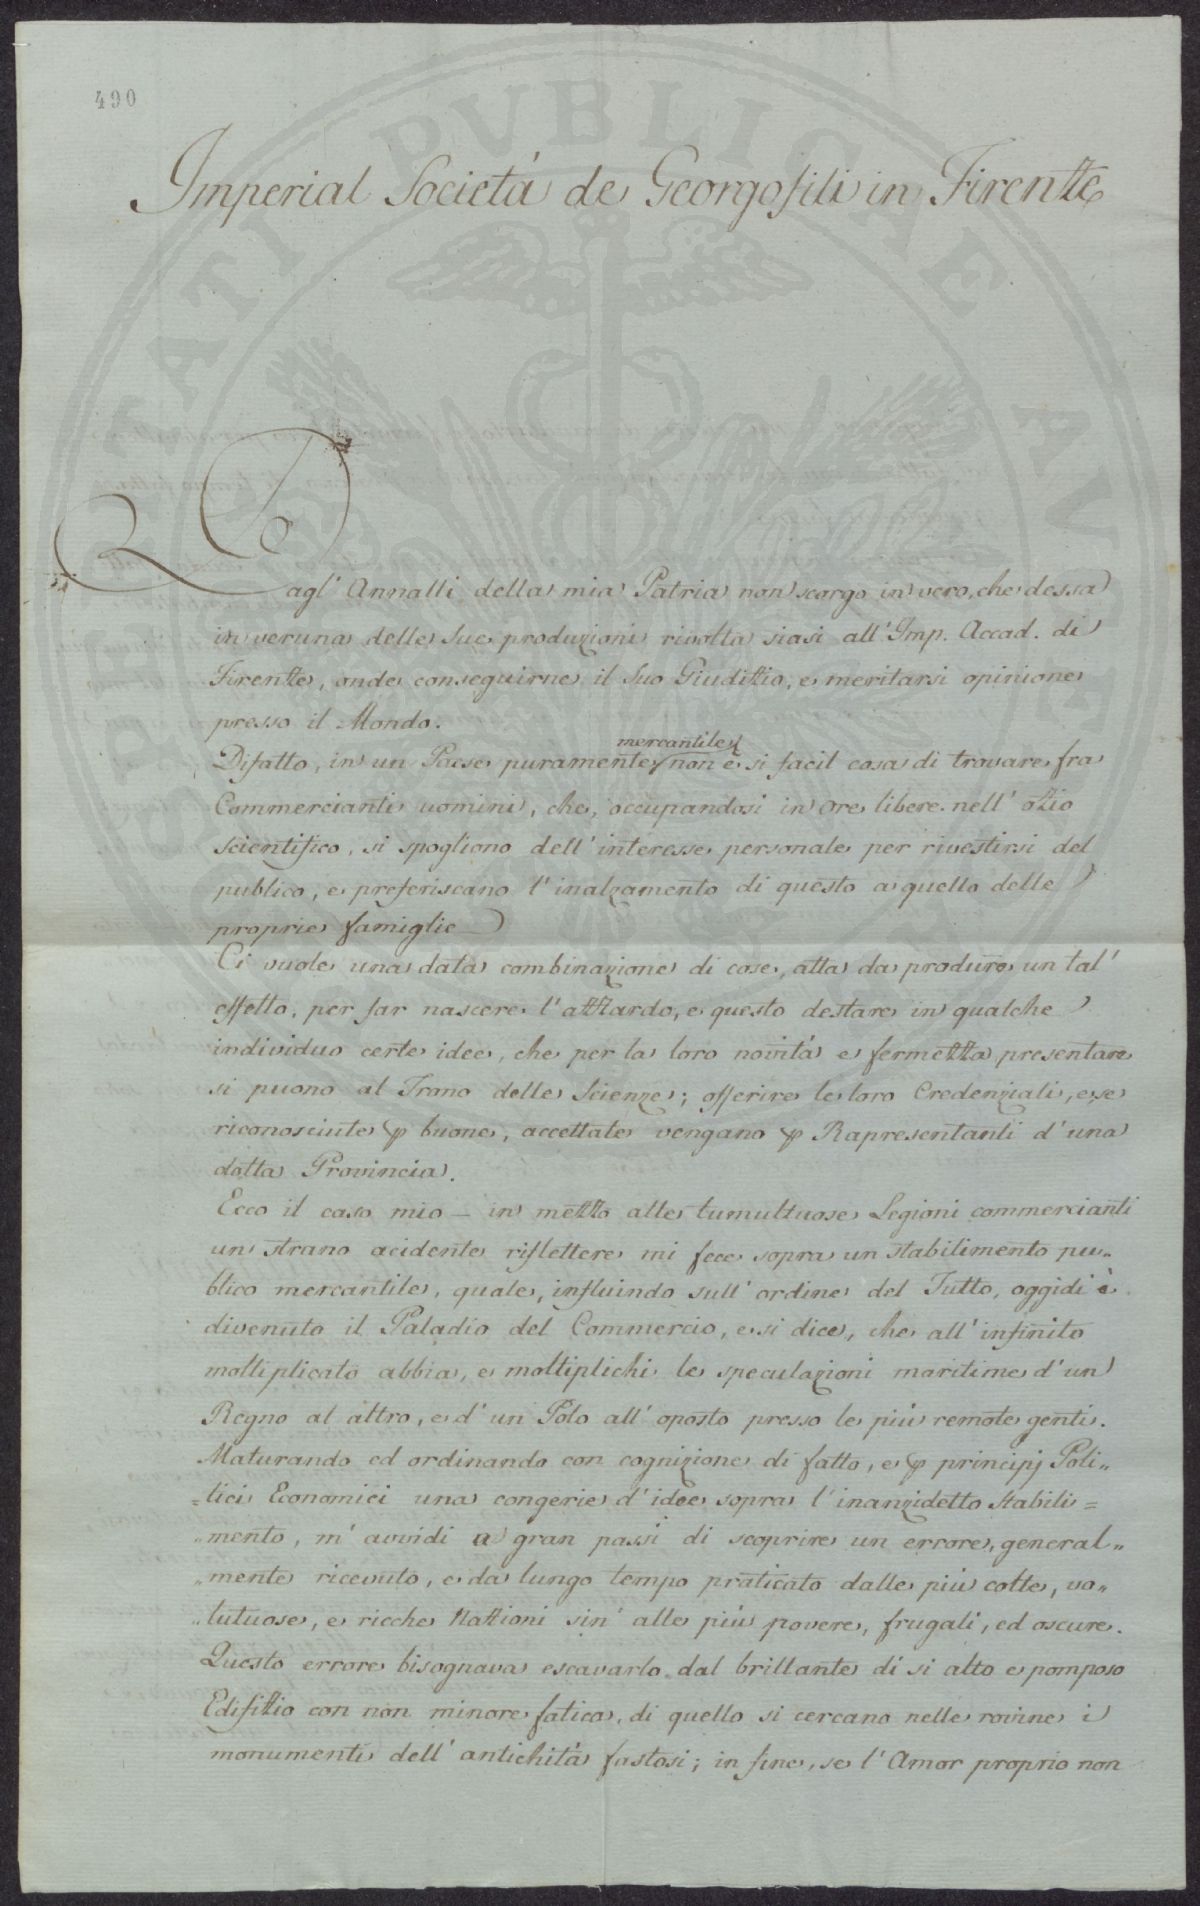 490
Imperial Società de Georgofili in Firentze
Dagl' Annalli della mia Patria non scorgo in vero, che dessa
in veruna delle Sue produzioni rivolta siasi all' Imp. Accad. di
Firentze, onde conseguirne il Suo Giuditzio, e meritarsi opinione
presso il Mondo.
Difatto, in un Paese puramente mercantile non è si facil cosa di trovare fra
Commercianti uomini, che, occupandosi in ore libere nell' otzio
scientifico, si spogliono dell' interesse personale per rivestirsi del
publico, e preferiscano l' inalzamento di questo a quello delle
proprie famiglie
Ci vuole una data combinazione di cose, atta da produre un tal'
effetto, per far nascere l' attzardo, e questo destare in qualche
individuo certe idee, che per la loro novità e fermetza presentare
si puono al Trono delle Scienze; offerire le loro Credenziali, e se
riconosciute p buone, accettate vengano p Rapresentanti d' una
dotta Provincia.
Ecco il caso mio – in metzo alle tumultuose Legioni commercianti
un strano acidente riflettere mi fece sopra un stabilimento pu„
blico mercantile, quale, influindo sull' ordine del Tutto, oggidi è
divenuto il Paladio del Commercio, e si dice, che all' infinito
moltiplicato abbia, e moltiplichi le speculazioni maritime d' un
Regno al altro, e d' un Polo all' oposto presso le più remote genti.
Maturando ed ordinando con cognizione di fatto, e p principj Poli„
=tici Economici una congerie d' idee sopra l' inanzidetto Stabili=
„mento, m' avvidi a gran passi di scoprire un errore, general„
„mente ricevuto, e da lungo tempo praticato dalle più colte, vo„
„lutuose, e ricche Natzioni sin' alle più povere, frugali, ed oscure.
Questo errore bisognava escavarlo dal brillante di si alto e pomposo
Edifitzio con non minore fatica, di quello si cercano nelle rovine i
monumenti dell' antichità fastosi; in fine, se l' Amor proprio non